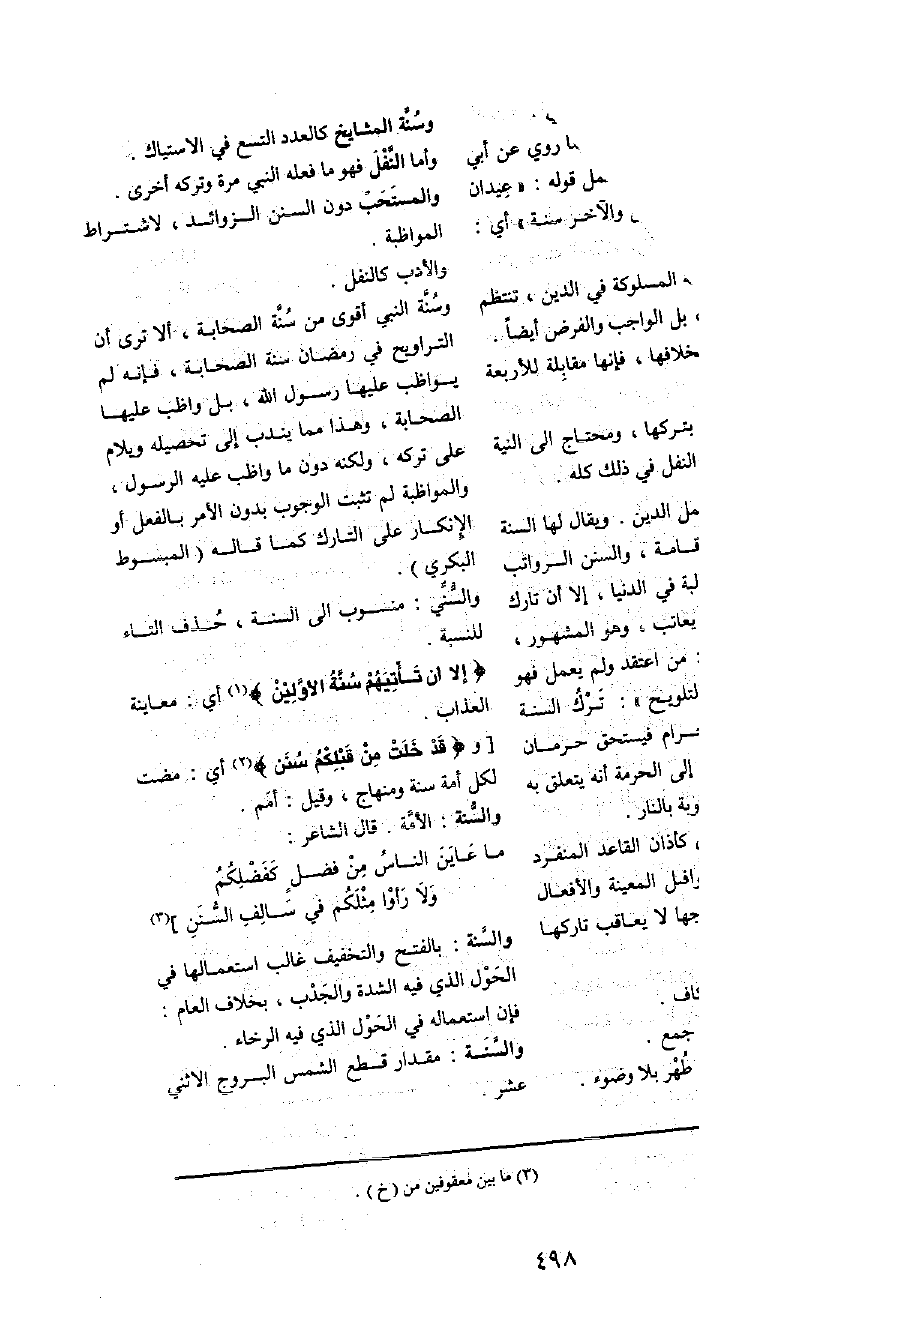 ا روي عن أبي
مل قوله : « عِيدان
والآخر سنة » أي :
المسلوكة في الدين ، تنتظم
، بل الواجب والفرض أيضاً .
خلافها ، فإنها مقابِلة للأربعة
بتركها ، ومحتاج الى النية
النفل في ذلك كله .
مل الدين . ويقال لها السنة
قامة ، والسنن الرواتب
لبة في الدنيا ، إلا أن تارك
يعاتب ، وهو المشهور ،
: من اعتقد ولم يعمل فهو
لتلويح » : تَرْكُ السنة
رام فيستحق حرمان
إلى الحرمة أنه يتعلق به
وبة بالنار .
، كأذان القاعد المنفرد
وافل المعينة والأفعال
جها لا يعاقب تاركها
كاف .
جمع .
طُهْر بلا وضوء .
وسُنَّة المشايخ كالعدد التسع في الاستياك .
وأما النَّفْلَ فهو ما فعله النبي مرة وتركه أخرى .
والمستَحَبّ دون السنن الزوائد ، لاشتراط
المواظبة .
والأدب كالنفل .
وسُنَّة النبي أقوى من سُنَّة الصحابة ، ألا ترى أن
التراويح في رمضان سنة الصحابة ، فإنه لم
يواظب عليها رسول الله ، بل واظب عليها
الصحابة ، وهذا مما يندب إلى تحصيله ويلام
على تركه ، ولكنه دون ما واظب عليه الرسول ،
والمواظبة لم تثبت الوجوب بدون الأمر بالفعل أو
الإنكار على التارك كما قاله ( المبسوط
البكري ) .
والسُّنِّي : منسوب الى السنة ، حُذف التاء
للنسبة .
﴿ إلا ان تَأْتِيَهُمْ سُنَّةُ الأوَّلِيْنَ ﴾(١) أي : معاينة
العذاب .
[ و ﴿ قَدْ خَلَتْ مِنْ قَبْلِكُمْ سُنَن ﴾(٢) أي : مضت
لكل أمة سنة ومنهاج ، وقيل : أمَم .
والسُّنة : الأمَّة . قال الشاعر :
ما عَايَنَ الناسُ مِنْ فضلٍ كَفَضْلِكُمُ
وَلَا رَأَوْا مِثْلَكُم في سَالِفِ السُّنَنِ ](٣)
والسَّنة : بالفتح والتخفيف غالب استعمالها في
الحَوْل الذي فيه الشدة والجَدْب ، بخلاف العام :
فإن استعماله في الحَوْل الذي فيه الرخاء .
والسَّنَة : مقدار قطع الشمس البروج الاثني
عشر .
(٣) ما بين معقوفين من ( خ ) .
٤٩٨